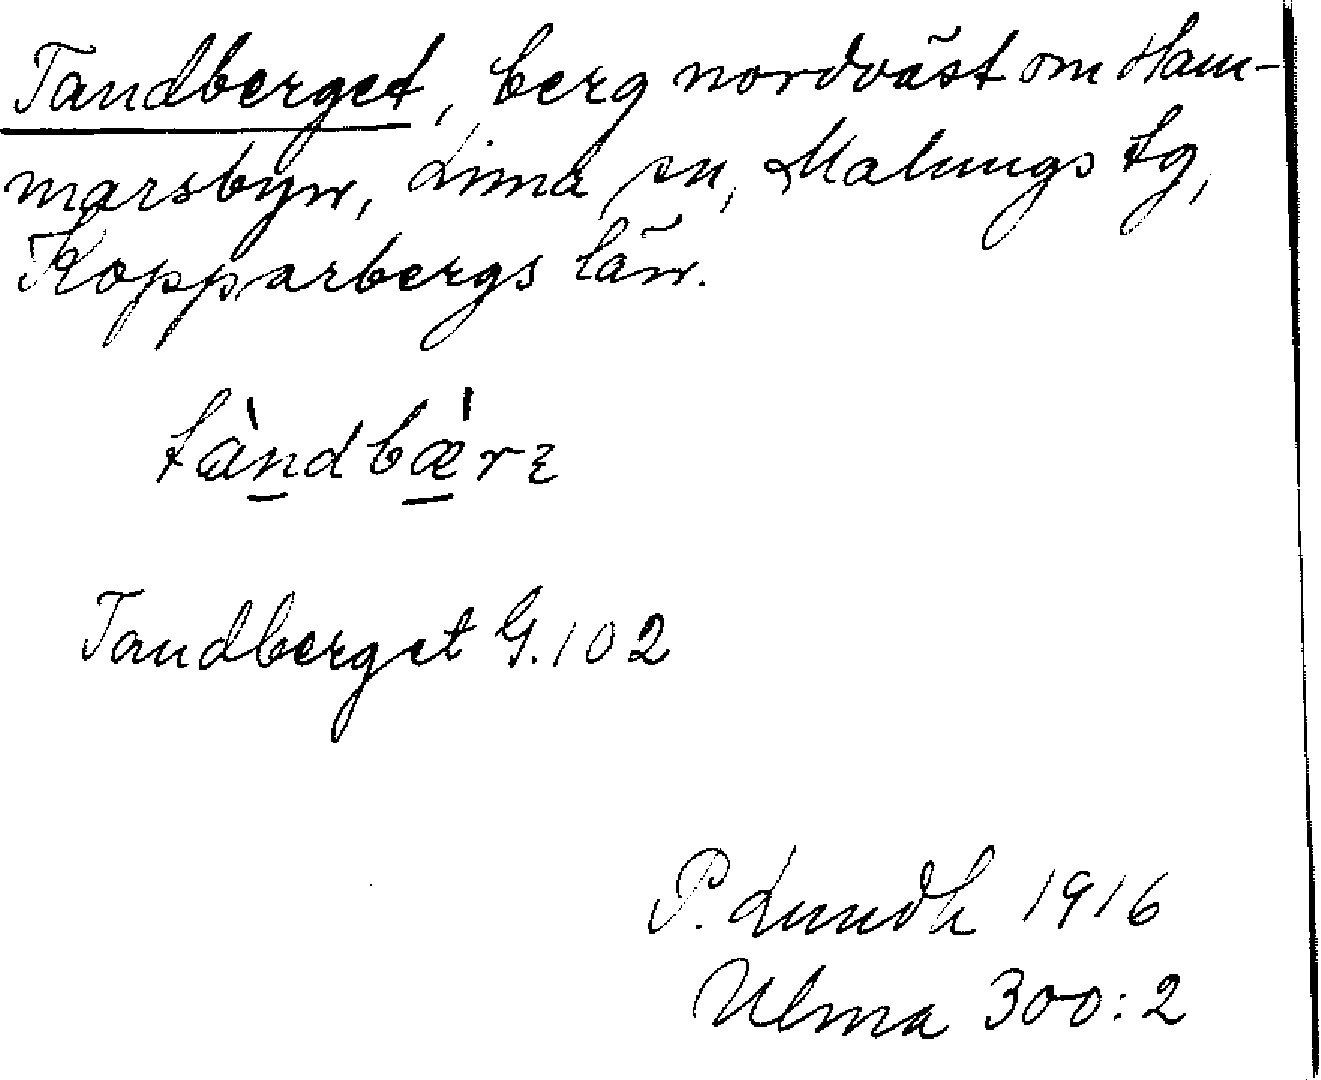 Tandberget, berg nordväst om Ham-
marsbyn, Lima sn, Malungs tg,
Kopparbergs län.
tàndbæ̀rɛ
Tandberget G.102
P. Lundh 1916
Ulma 300:2